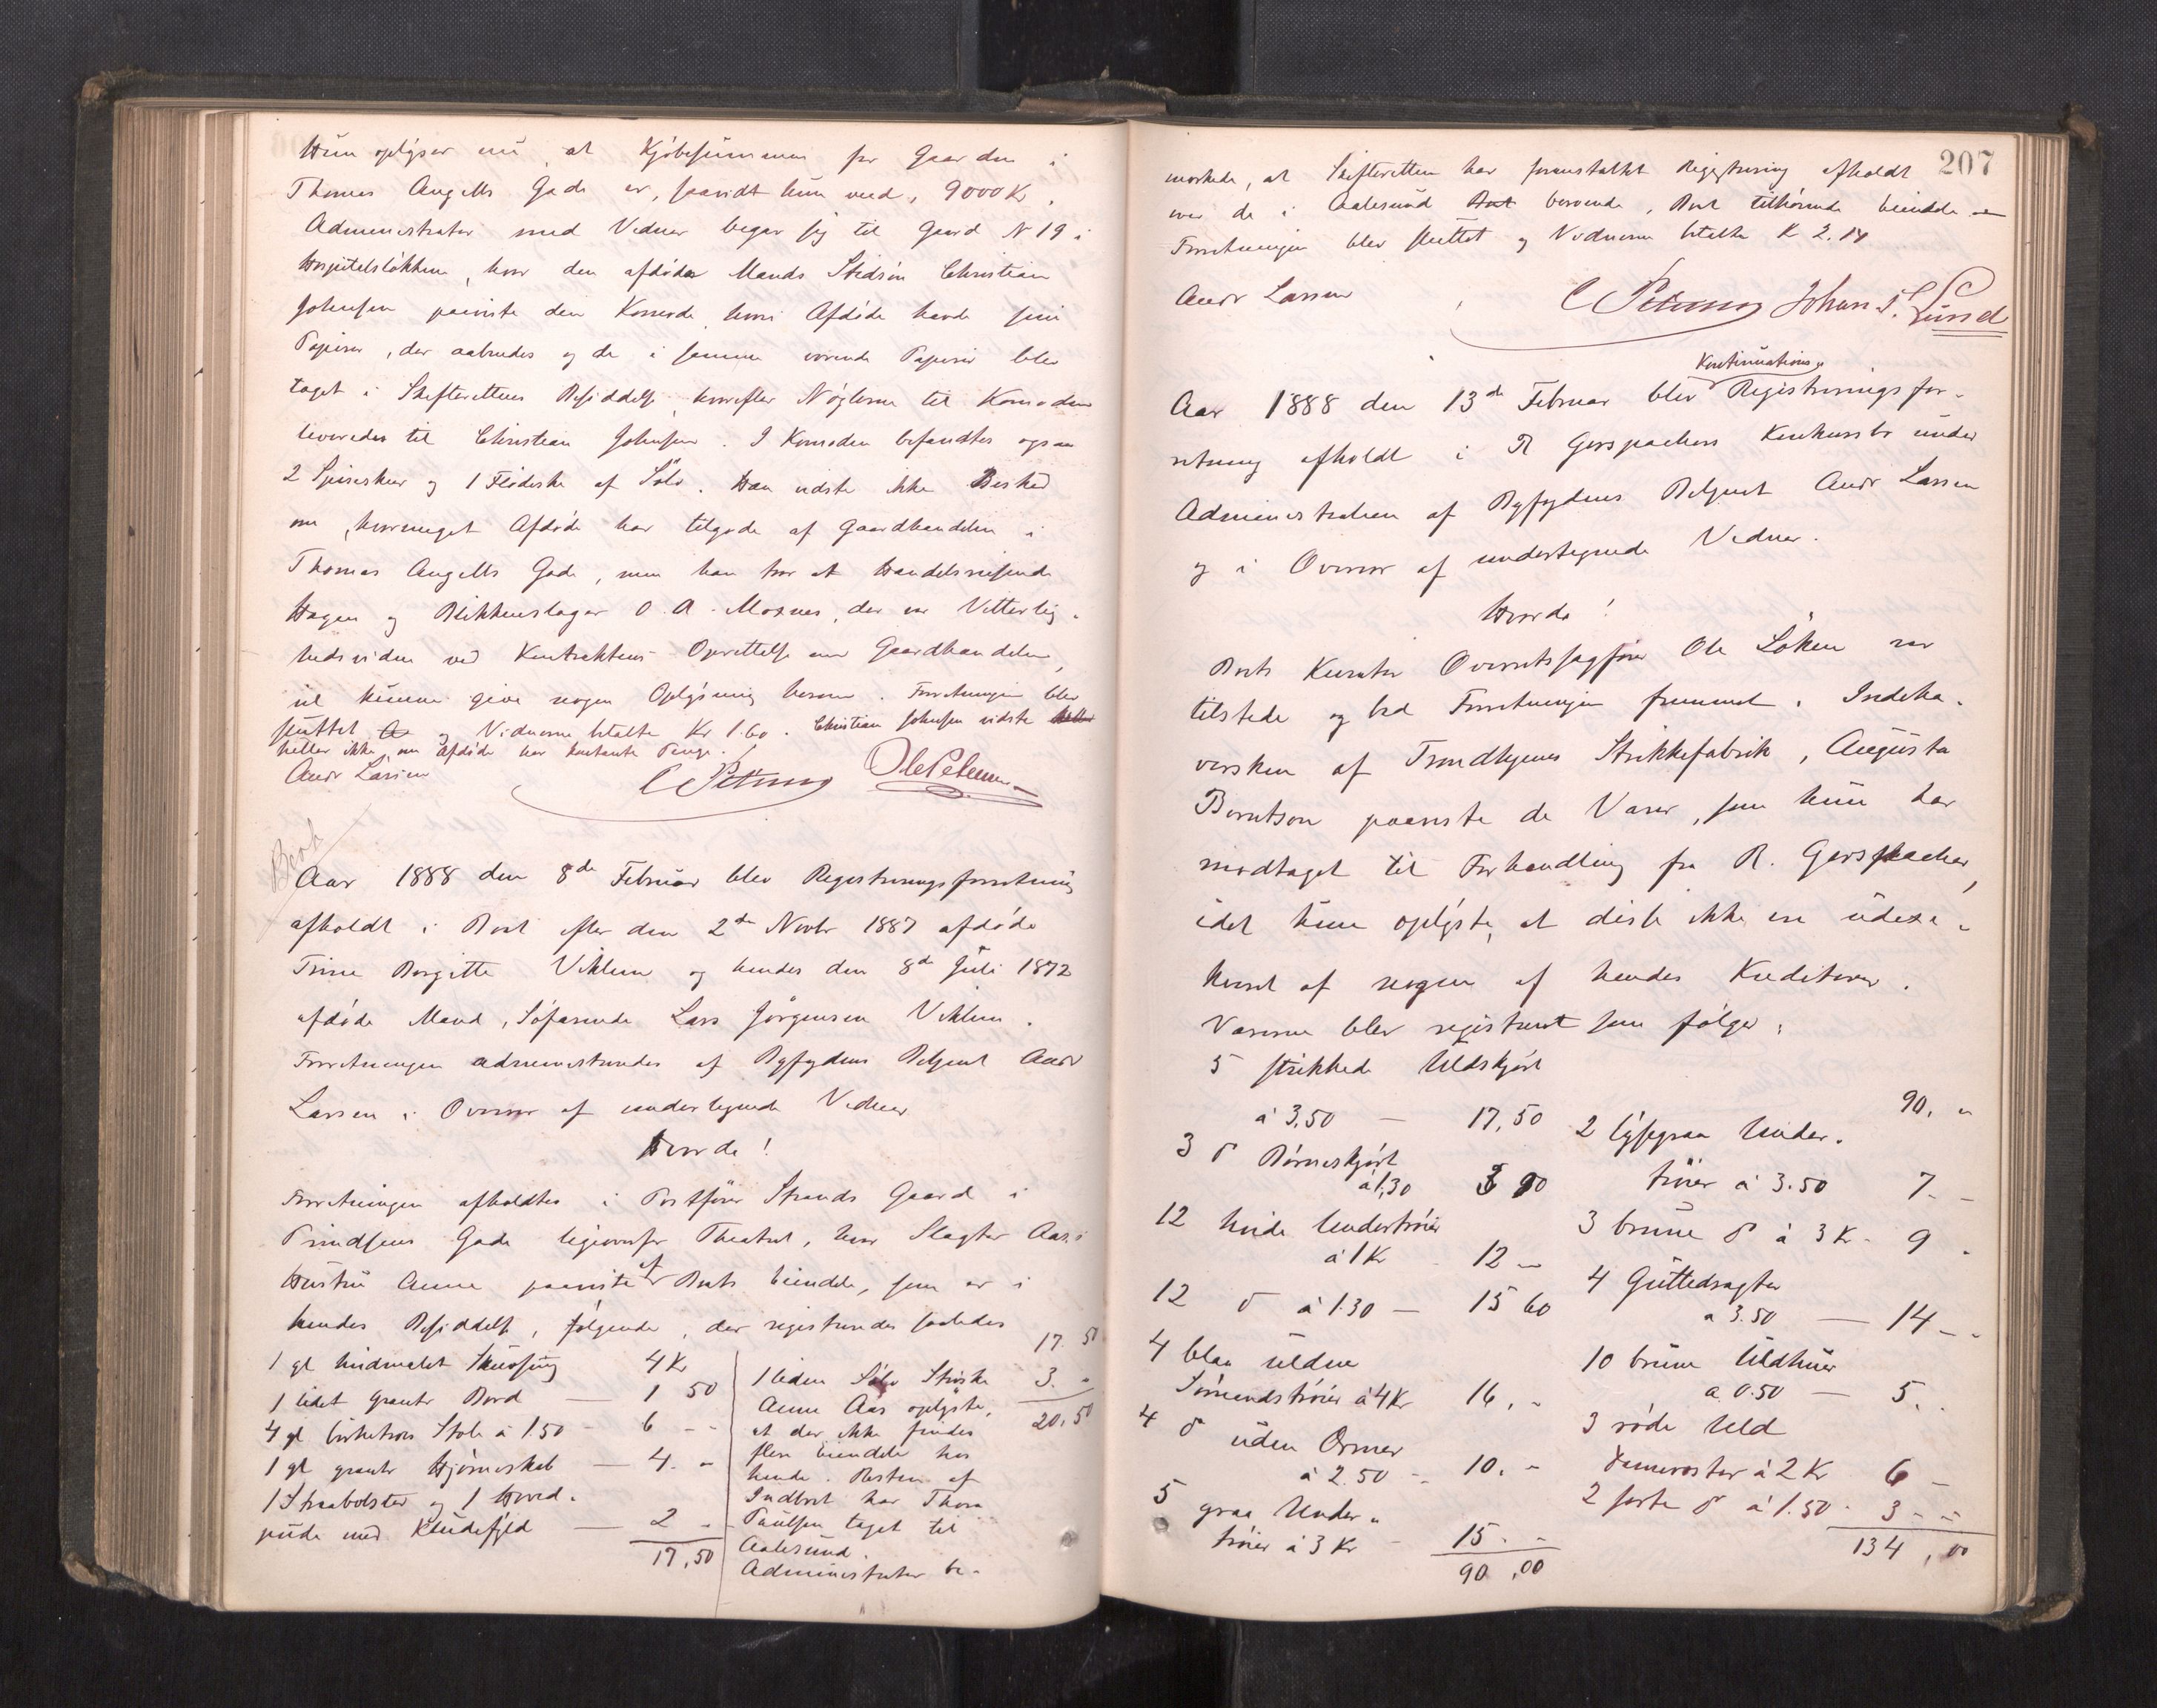 Hun oplyser nu, at Kjøbesummen for Gaarden i
Thomas Angells Gade er, saavidt hun veed, 9000 Kr.
Administrator med Vidner begav sig til Gaard N 19 i
Hospitalsløkken, hvor den afdødes Mands Stedsøn Christian
Johnsen paaviste den Komode hvori Afdøde havde sine
Papirer, der aabnedes og de i samme værende Papirer blev
taget i Skifterettens Besiddelse, hvorefter Nøglerne til Komoden
leveredes til Christian Johnsen. I Komoden befandtes ogsaa
2 Spiseskeer og 1 Flødeske af Sølv. Han vidste ikke Besked
om, hvormeget Afdøde har tilgode af Gaardhandelen i
Thomas Angells Gade, men han tror at Handelsreisende
Hagen og Blikkenslager O. A. Moxnes, der var Vitterlig-
hedsvidne ved Kontraktens Oprettelse om Gaardhandelen,
vil kunne give nogen Oplysning herom. Forretningen blev
sluttet og Vidnerne betalte Kr 1.60. Christian Johnsen vidste
heller ikke, om Afdøde har kontante Penge.
Andr Larsen C Petersen Ole Petersen
Aar 1888 den 8de Februar blev Registreringsforretning
afholdt i Boet efter den 2den Novbr 1887 afdøde
Trine Borgitte Viklem og hendes den 8de Juli 1872
afdøde Mand, Søfarende Lars Jørgensen Viklem.
Forretningen administreredes af Byfogdens Betjent Andr
Larsen i Overvær af undertegnede Vidner
Hvorda!
Forretningen afholdtes i Postfører Strands Gaard i
Prindsens Gade ligeoverfor Theatret, hvor Slagter Aas's
Hustru Anne paaviste af Boets Eiendele, som er i
hendes Besiddelse, følgende, der registreredes saaledes
1 gl hvidmalet Skuvseng 4 Kr
1 lidet Grantr Bord — 1 50
4 gl birketræs Stole à 1.50 - 6 - -
1 gl grantr Hjørneskab — 4. -
1 Straabolster og 1 Hoved-
pude med Kludefyld — 2 - -
17,50
17. 50
1 liden Sølv Strøske 3. -
20,50
Anne Aas oplyste,
at der ikke findes
flere Eiendele hos
hende. Resten af
Indboet har Thora
Paulsen taget til
Aalesund.
Administrator be-
207
mærkede, at Skifteretten har foranstaltet Registrering afholdt
over de i Aalesund beroende, Boet tilhørende Eiendele —
Forretningen blev sluttet og Vidnerne betalte K 2.14
Andr Larsen C Petersen Johan P. Lund
Kontinuations-
Aar 1888 den 13de Februar blev Registreringsfor-
retning afholdt i R Gerspachers Konkursbo under
Administration af Byfogdens Betjent Andr Larsen
og i Overvær af undertegnede Vidner.
Hvorda!
Boets Kurator Overretssagfører Ole Løken var
tilstede og bad Forretningen fremmet. Indeha-
versken af Trondhjems Strikkefabrik, Augusta
Berntson paaviste de Varer, som hun har
modtaget til Forhandling fra R. Gerspacher,
idet hun oplyste, at disse ikke er udexe-
kveret af nogen af hendes Kreditorer.
Varerne blev registreret som følger:
5 strikkede Uldskjørt
à 3,50 — 17,50
3 do Børneskjørt
à 1,30 3 90
12 hvide Undertrøier
à 1 Kr 12 —
12 do à 1.30 — 15 60
4 blaa uldne
Sømandstrøier à 4 Kr 16, -
4 do uden Ærmer
à 2.50 - 10. -
5 graa Under-
trøier à 3 Kr - 15. -
90,00
90, -
2 lysegraa Under-
trøier à 3.50 7. -
3 brune do à 3 Kr - 9 -
4 Guttedragter
a 3.50 — 14 - -
10 brune Uldhuer
a 0.50 — 5. -
3 røde Uld
Damevester à 2 Kr 6 -
2 sorte do à 1.50 - 3 - -
134,00